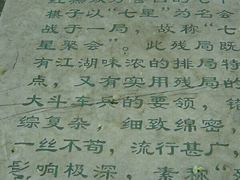 棋子以“七星”为名会
战于一局，故称“七
星聚会”。此残局既
有江湖味浓的排局特
点，又有实用残局的
大斗车兵的要领，错
综复杂，细致绵密
一丝不苟，流行甚广，
影响极深，素称“残